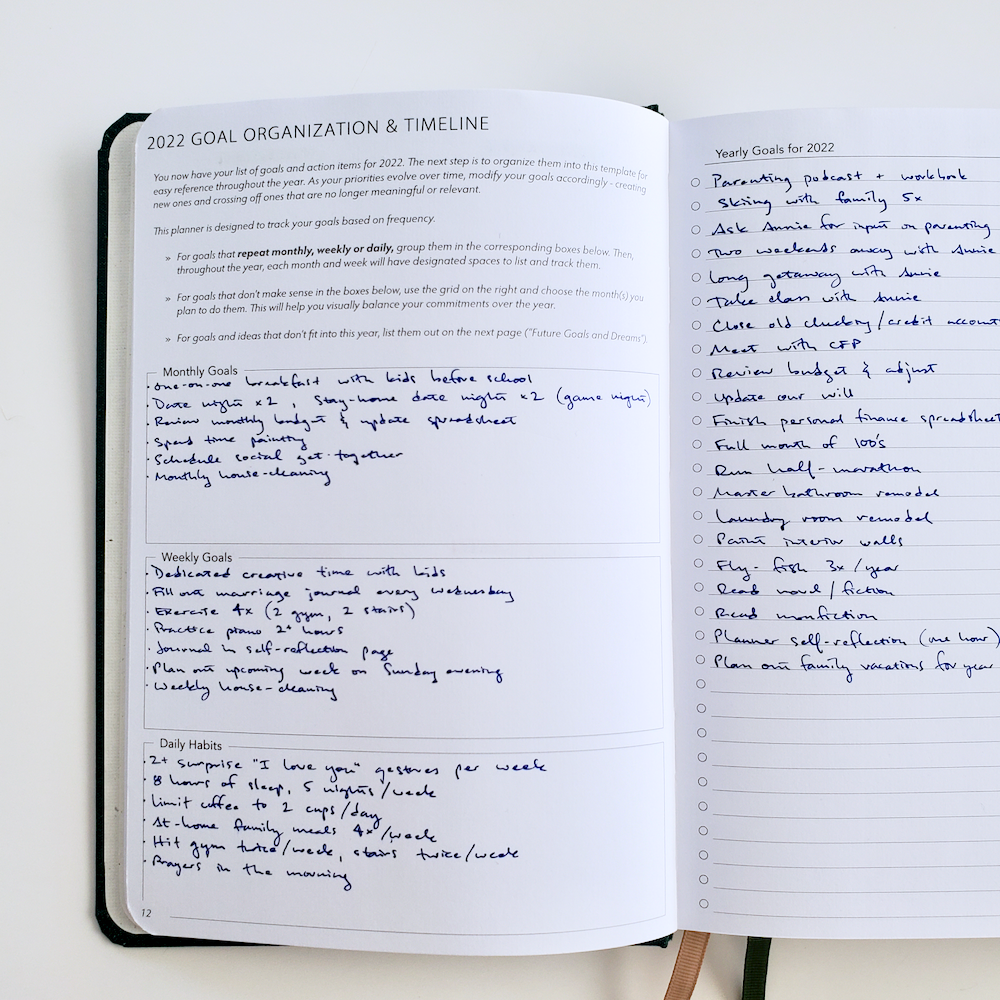 2022 GOAL ORGANIZATION & TIMELINE
You now have your list of goals and action items for 2022. The next step is to organize them into this template for
easy reference throughout the year. As your priorities evolve over time, modify your goals accordingly - creating
new ones and crossing off ones that are no longer meaningful or relevant.
This planner is designed to track your goals based on frequency.
» For goals that repeat monthly, weekly or daily, group them in the corresponding boxes below. Then,
throughout the year, each month and week will have designated spaces to list and track them.
» For goals that don't make sense in the boxes below, use the grid on the right and choose the month(s) you
plan to do them. This will help you visually balance your commitments over the year.
» For goals and ideas that don't fit into this year, list them out on the next page ("Future Goals and Dreams").
Monthly Goals
· One-on-one breakfast with kids before school
· Date nights x2, Stay-home date nights x2 (game night)
· Review monthly budget & update spreadsheet
· Spend time painting
· Schedule social get-together
· Monthly house-cleaning
Weekly Goals
· Dedicated creative time with kids
· Fill out marriage journal every Wednesday
· Exercise 4x (2 gym, 2 stairs)
· Practice piano 2+ hours
· Journal in self-reflection page
· Plan out upcoming week on Sunday evening
· Weekly house-cleaning
Daily Habits
· 2+ surprise "I love you" gestures per week
· 8 hours of sleep, 5 nights/week
· Limit coffee to 2 cups/day
· At-home family meals 4x/week
· Hit gym twice/week, stairs twice/week
· Prayers in the morning
12
Yearly Goals for 2022
Parenting podcast + workbook
Skiing with family 5x
Ask Annie for input on parenting
Two weekends away with Annie
Long getaway with Annie
Take class with Annie
Close old checking/credit account
Meet with CFP
Review budget & adjust
Update our will
Finish personal finance spreadsheet
Full month of 100's
Run half-marathon
Master bathroom remodel
Laundry room remodel
Paint interior walls
Fly-fish 3x/year
Read novel/fiction
Read nonfiction
Planner self-reflection (one hour)
Plan out family vacations for year